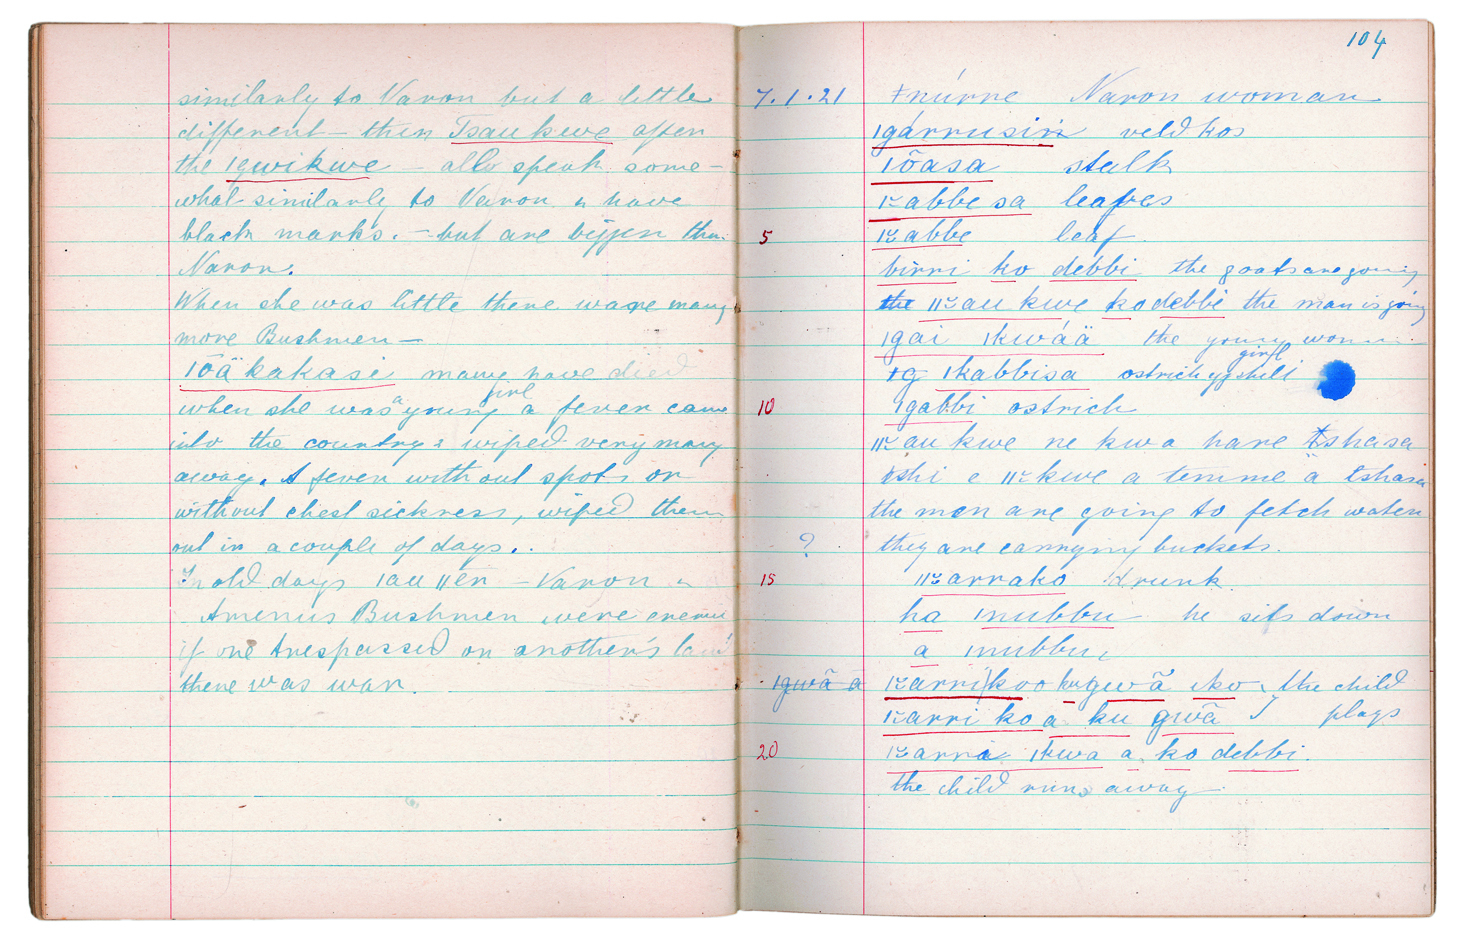 similarly to Naron but a little
different – then Tsaukwe often
the ǀgwikwe – also speak some–
what similarly to Naron & have
black marks. – but are bigger than
Naron.
When she was little there were many
more Bushmen –
ǀōä kakasi many have died
when she was a young girl a fever came
into the country & wiped very many
away. A fever without spots or
without chest sickness, wiped them
out in a couple of days..
In old days ǀau ǁēn – Naron &
Amenius Bushmen were enemies
if one trespassed on another's land
there was war.
104
7.1.21 ǂnúrne Naron woman
ǀgárrusiń veldkos
ǀõasa stalk
abbe sa leaves
5 abbe leaf
birri ko debbi the goats are going
the au kwe ko debbi the man is going
ǀgai ǀkwáä the young woman
girl
ǀg ǀkabbisa ostrich eggshell
10 ǀgabbi ostrich
au kwe ne kwa hare tshasa
tshi e kwe a temme ä tshasa
the men are going to fetch water
? they are carrying buckets.
15 arrako drunk
ha ǀnubbu he sits down
a ǀnubbu
ǀgwã ä arri koo ku gwã ko the child
arri ko a ku gwã plays
20 arri ǀkwa a ko debbi.
the child runs away